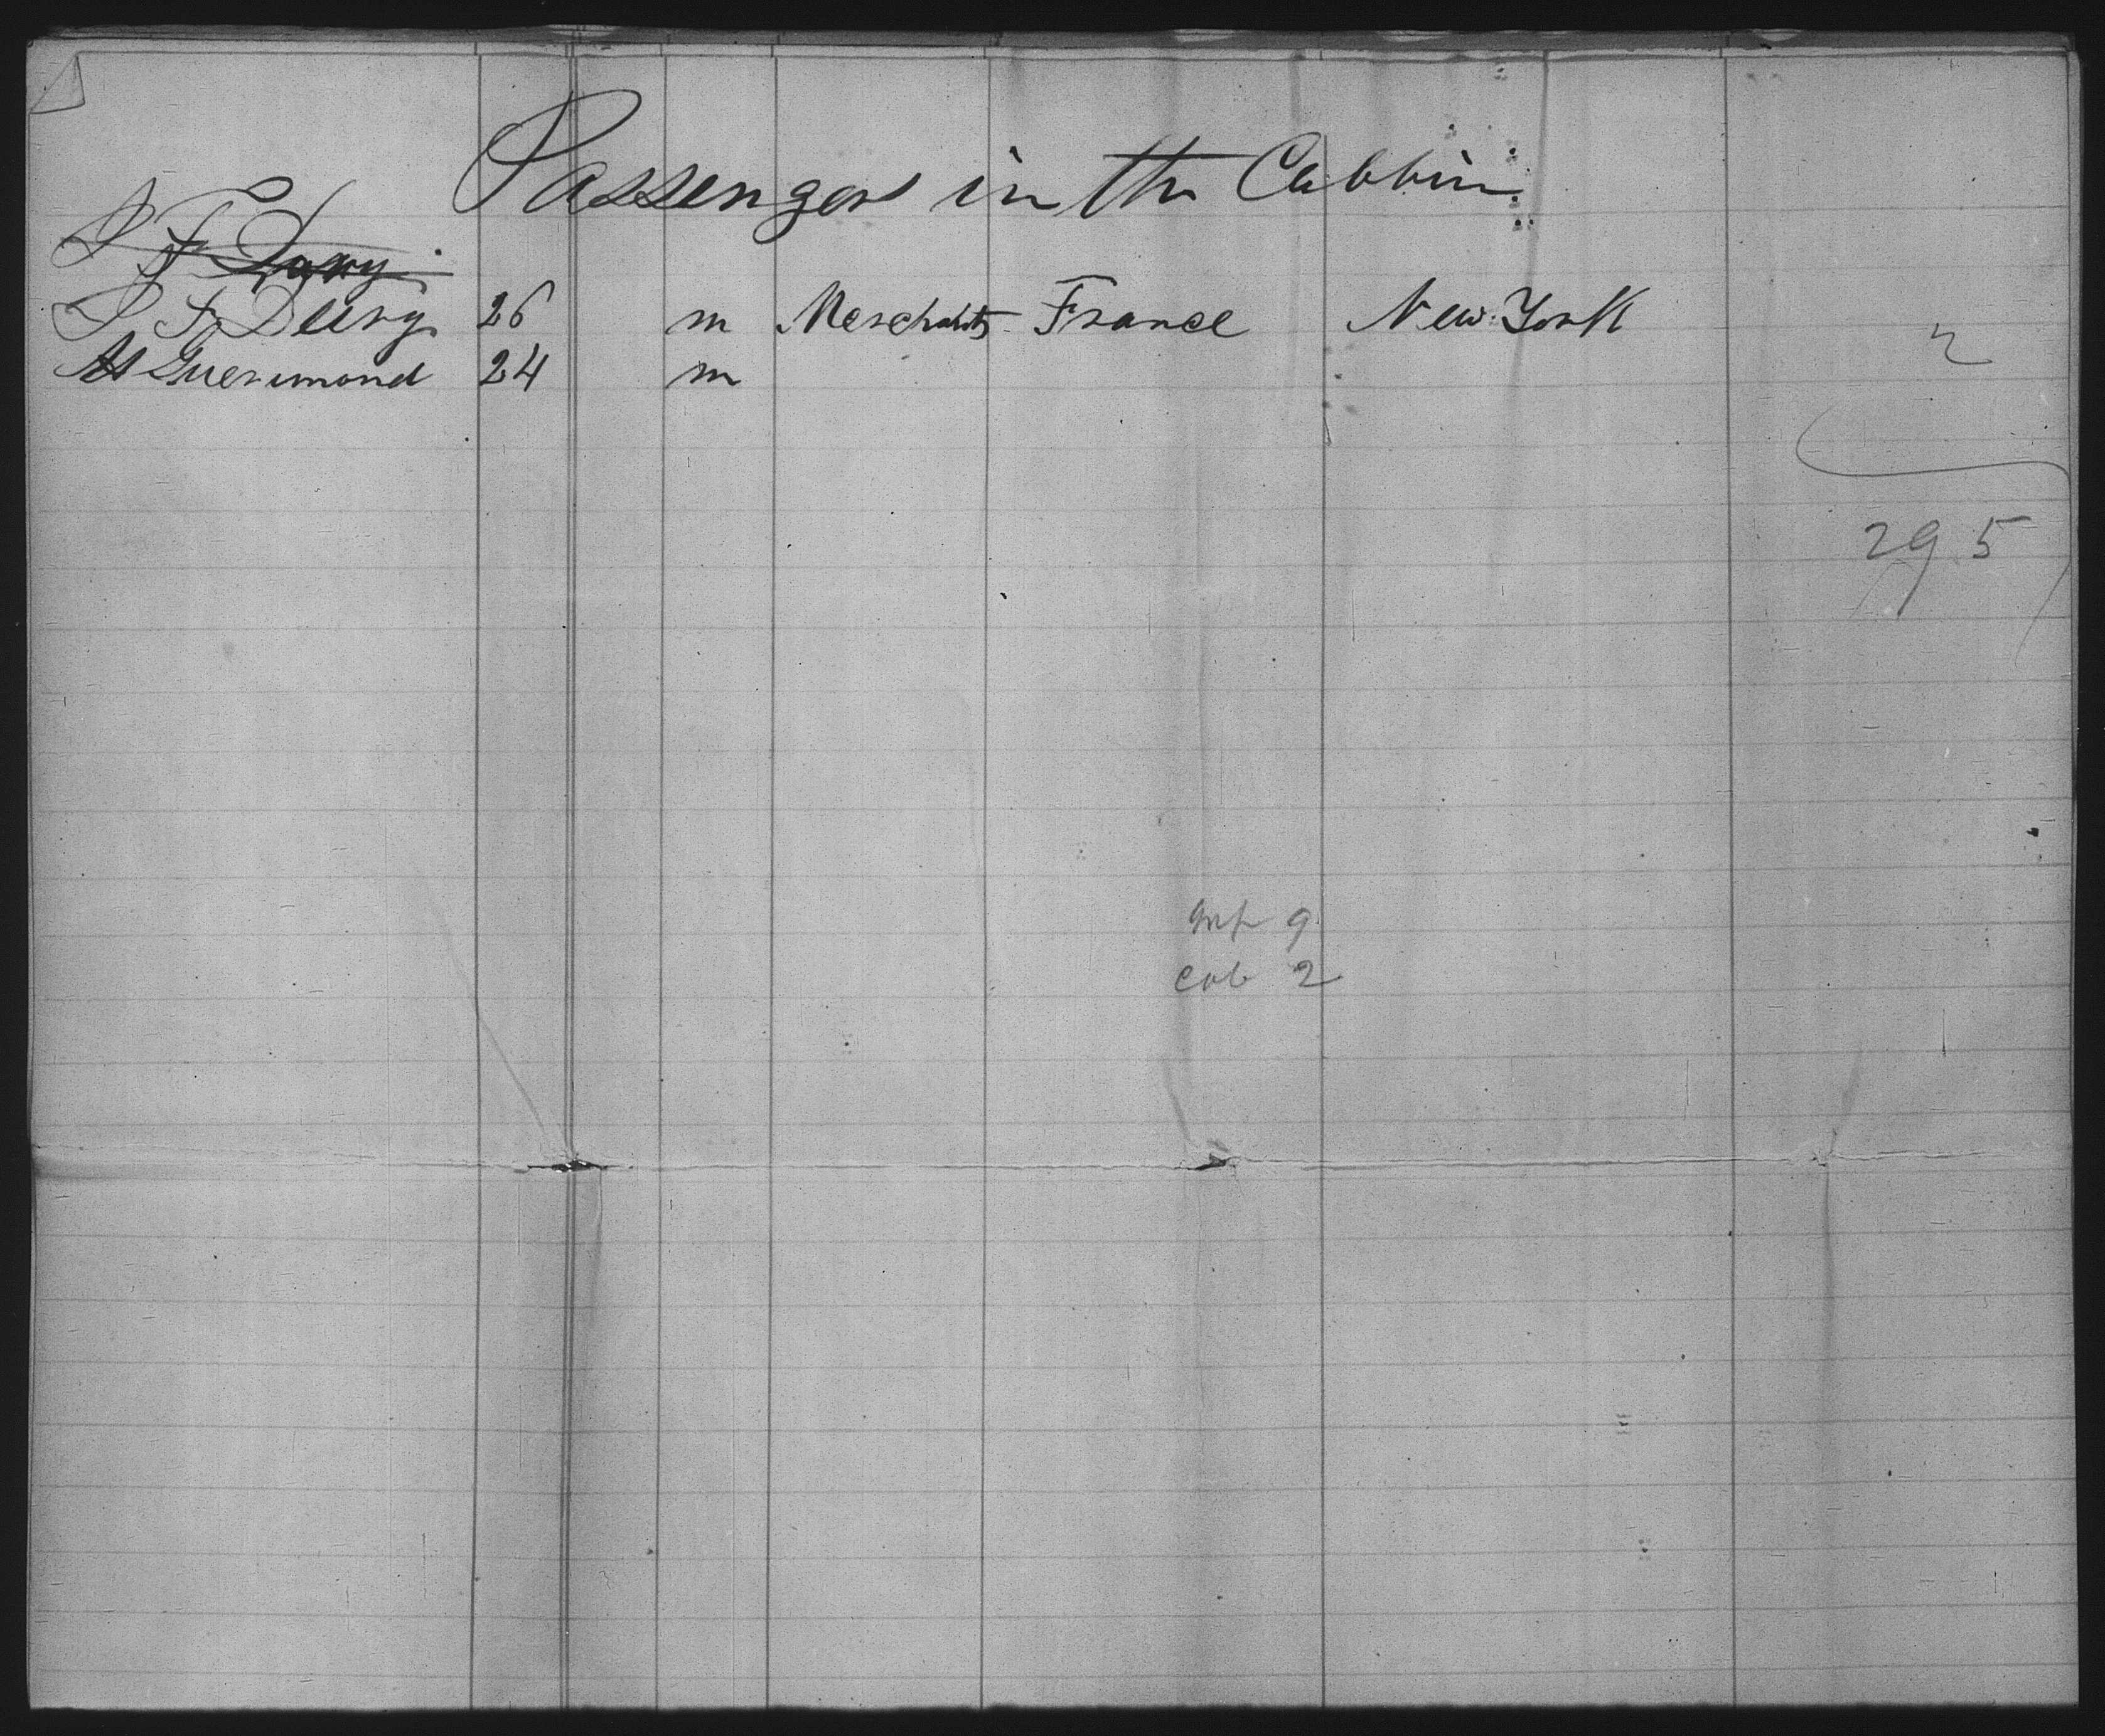 Passengers in the Cabbin
S F Deery 26 m Merchants France New York
A Guerimond 24 m
2
295
Inf 9
Cab 2